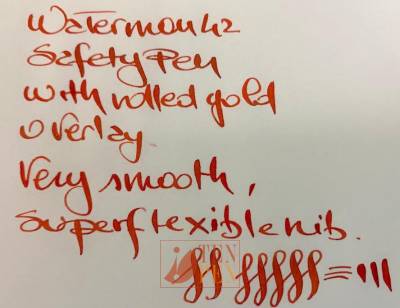 Waterman 42
Safety Pen
with rolled gold
overlay.
Very smooth,
superflexible nib.